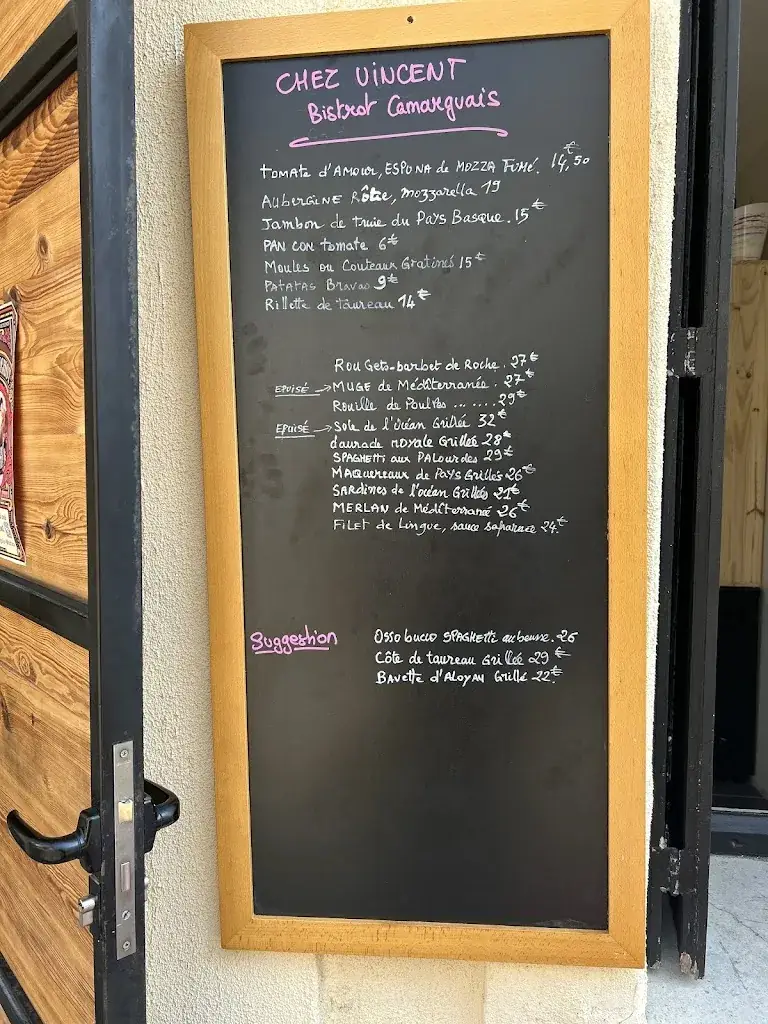 CHEZ VINCENT
Bistrot Camarguais
TOMATE d'AMOUR, ESPUNA de MOZZA FUMÉ. 14,50€
AUBERGINE Rôtie, mozzarella 19
Jambon de truie du PAYS Basque. 15€
PAN CON tomate 6€
Moules ou Couteaux Gratinés 15€
PATATAS Bravas 9€
Rillette de taureau 14€
ROUGETS-barbet de Roche. 27€
EPUISÉ → MUGE de Méditerranée. 27€
Rouille de Poulpes ........ 29€
EPUISÉ → Sole de l'océan Grillée 32€
daurade ROYALE Grillée 28€
SPAGHETTI aux PALourdes 29€
MAQuereaux de PAYS Grillés 26€
SARdines de l'océan Grillées 21€
MERLAN de Méditerranée 26€
FILET de Lingue, sauce 24€
Suggestion
Osso bucco SPAGHETTI au beurre. 26
Côte de taureau Grillée 29€
BAVette d'ALOYAU Grillé 22€